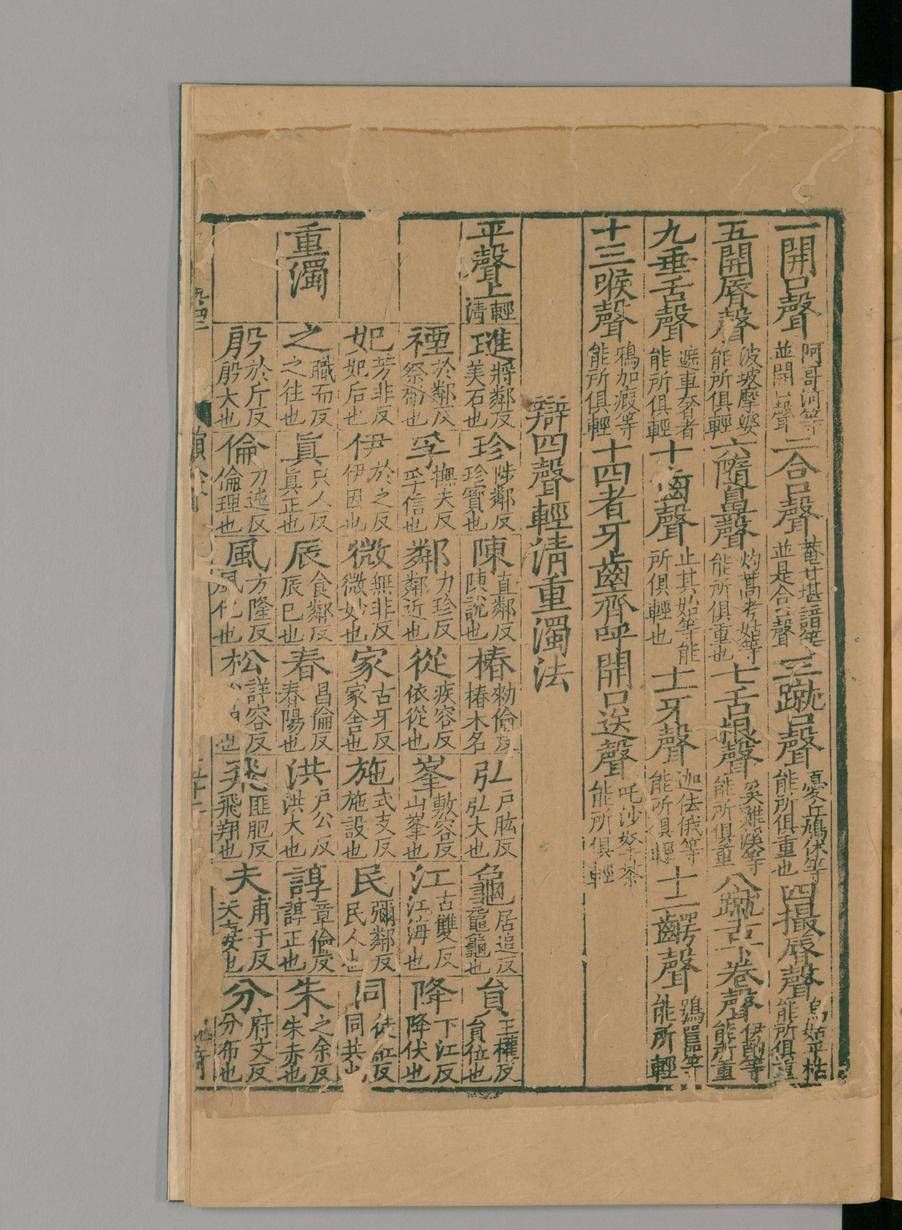 一開口聲 阿哥河等並開口聲 二合口聲 菴甘堪諳等並是合口聲 三蹴口聲 憂丘鳩休等能所俱重也 四撮脣聲 烏姑乎枯能所俱重
五開脣聲 波坡摩婆能所俱輕 六隨鼻聲 灼蒿考姑等能所俱重也 七舌根聲 奚雞溪等能所俱重 八蹴舌下卷聲 伊酌等能所重
九垂舌聲 遮車奢者能所俱輕 十齒聲 止其始等能所俱輕也 十一牙聲 迦佉俄等能所俱輕 十二齶聲 鶚等能所輕
十三喉聲 鴉加瑕等能所俱輕 十四者牙齒齊呼開口送聲 吒沙拏茶能所俱輕
辯四聲輕清重濁法
平聲上 輕清 璡 將鄰反美石也 珍 陟鄰反珍寶也 陳 直鄰反陳說也 椿 勑倫反椿木名 弘 戶肱反弘大也 龜 居追反龜也 員 王權反員位也
禋 於鄰反祭也 孚 撫夫反孚信也 鄰 力珍反鄰近也 從 疾容反依從也 峯 敷容反山峯也 江 古雙反江海也 降 下江反降伏也
妃 芳非反妃后也 伊 於之反伊因也 微 無非反微妙也 家 古牙反家舍也 施 式支反施設也 民 彌鄰反民人也 同 徒紅反同共也
重濁 之 職而反之往也 眞 只人反眞正也 辰 食鄰反辰巳也 春 昌倫反春陽也 洪 戶公反洪大也 諄 章倫反諄正也 朱 之余反朱赤也
殷 於斤反殷大也 倫 力迍反倫理也 風 方隆反風化也 松 詳容反也 飛 匪肥反飛翔也 夫 甫于反夫妻也 分 府文反分布也